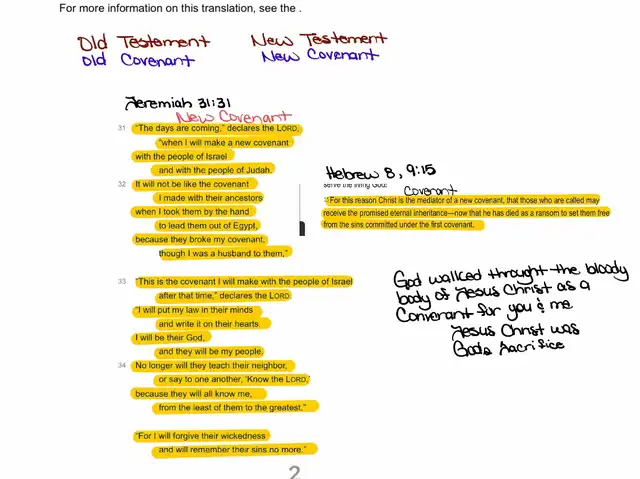 For more information on this translation, see the .
Old Testament New Testament
Old Covenant New Covenant
Jeremiah 31:31
New Covenant
31 "The days are coming," declares the LORD,
"when I will make a new covenant
with the people of Israel
and with the people of Judah.
32 It will not be like the covenant
I made with their ancestors
when I took them by the hand
to lead them out of Egypt,
because they broke my covenant,
though I was a husband to them,"
33 "This is the covenant I will make with the people of Israel
after that time," declares the LORD.
"I will put my law in their minds
and write it on their hearts.
I will be their God,
and they will be my people.
34 No longer will they teach their neighbor,
or say to one another, 'Know the LORD,'
because they will all know me,
from the least of them to the greatest,"
"For I will forgive their wickedness
and will remember their sins no more."
Hebrew 8, 9:15
serve the living God!
Covenant
15 For this reason Christ is the mediator of a new covenant, that those who are called may
receive the promised eternal inheritance—now that he has died as a ransom to set them free
from the sins committed under the first covenant.
God wallked throught the bloody
body of Jesus Christ as a
Converant for you & me
Jesus Christ was
Gods Sacrifice
2